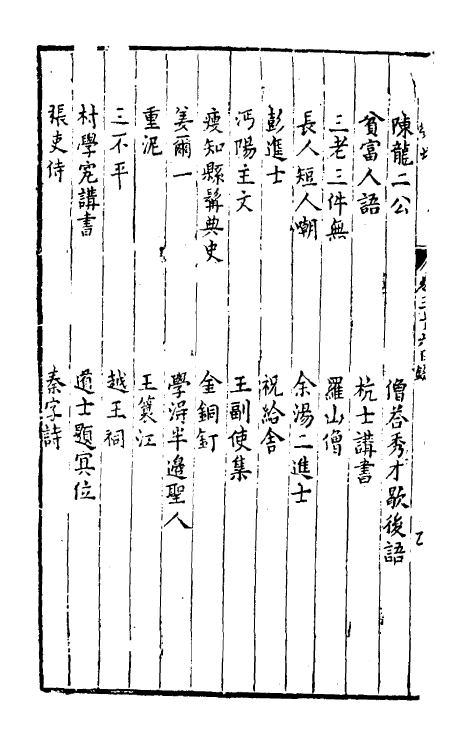 陳龍二公　僧荅秀才歇後語
貧富人語　杭士講書
三老三件無　羅山僧
長人短人嘲　余湯二進士
彭進士　祝給舍
沔陽主文　王副使集
瘦知縣髯典史　金銅釘
姜爾一　學淂半邊聖人
重泥　王篡江
三不平　越王祠
村學究講書　道士題㝠位
張吏侍　秦字詩